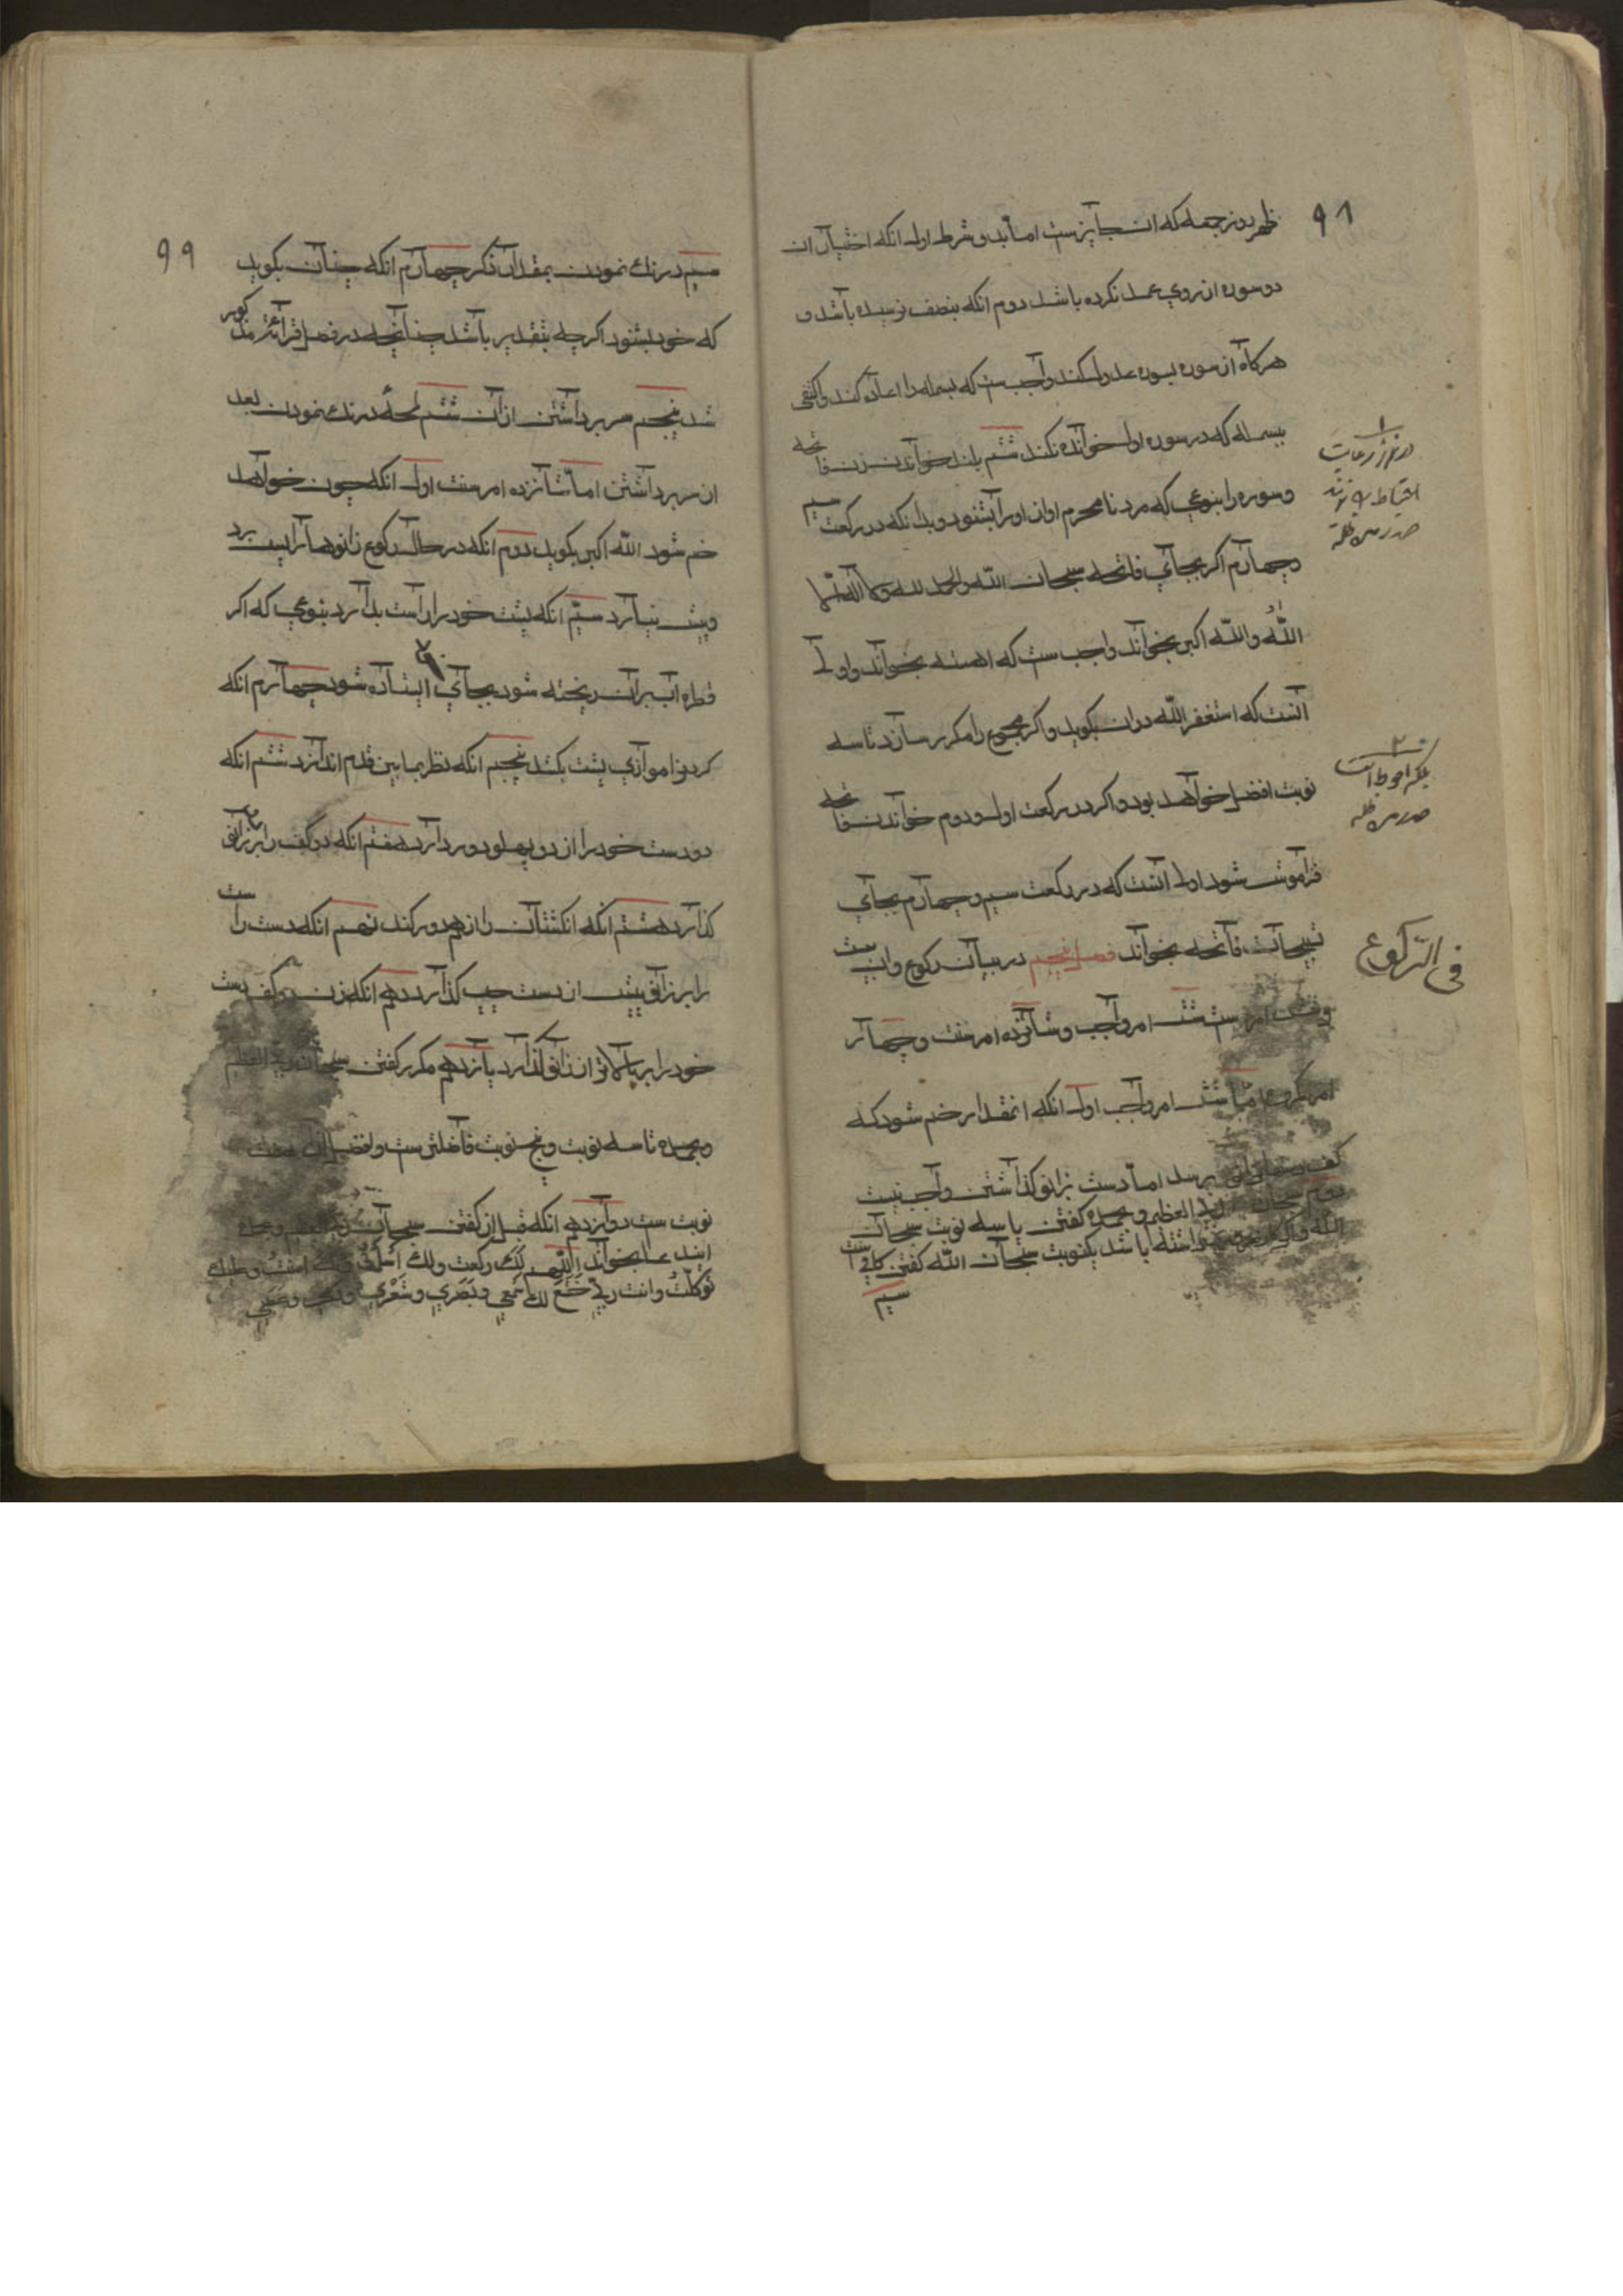 ۹۸
ظهر روز جمعه که ان جایزست اما بدو شرط اول انکه اختیار ان
دو سوره از روی عمد نکرده باشد دوم انکه بنصف نرسیده باشد و
هرکاه از سوره بسوره عدول کند واجب ست که بسمله را اعاده کند و اکتفی
ببسمله که در سوره اول خوانده نکند ششم بلند خواندن زن فاتحه
وسوره را بنوعی که مرد نامحرم اواز او را بشنود و بدانکه در رکعت سیم
وچهارم اکر بجای فاتحه سبحان الله والحمد لله ولا اله الا
الله والله اکبر بخواند واجب ست که اهسته بخواند و اولی
آنست که استغفر الله دران بکوید و اکر مجموع را مکرر سازد تا سه
نوبت افضل خواهد بود و اکر در رکعت اول و دوم خواندن فاتحه
فراموش شود اولی انست که در رکعت سیم و چهارم بجای
تسبیحات فاتحه بخواند فصل پنجم در بیان رکوع وان بیست
وشش امرست شش امر واجب و شانزده امر سنت و چهار
امر مکروه اما شش امر واجب اول انکه انمقدار خم شود که
کف دستها بزانو برسد اما دست بزانو کذاشتن واجب نیست
دوم سبحان ربی العظیم وبحمده کفتن یا سه نوبت سبحان
الله و اکر ضرورتی داشته باشد یکنوبت سبحان الله کفتن کافی است
سیم
در نماز رکعات
احتیاط
صدر مد ظله
بلکه احوط است
صدر مد ظله
فی الرکوع
۹۹
سیم درنك نمودن بمقدار ذکر چهارم انکه چنان بکوید
که خود بشنود اکرچه بتقدیر باشد چنانچه در فصل قرائة مذکور
شد پنجم سر برداشتن ازان ششم لمحهٔ درنك نمودن بعد
از سر برداشتن اما شانزده امر سنت اول انکه چون خواهد
خم شود الله اکبر بکوید دوم انکه در حال رکوع زانوها را پس برد
و پیش نیارد سیم انکه پشت خود را راست بدارد بنوعی که اکر
قطره اب بران ریخته شود بجای ایستاده شود چهارم انکه
کردن را موازی پشت بکشد پنجم انکه نظر بمابین قدم اندازد ششم انکه
دو دست خود را از دو پهلو دور دارد هفتم انکه دو کف را بر زانو
کذارد هشتم انکه انکشتان را از هم دور کند نهم انکه دست راست
را بر زانو پیش از دست چپ کذارد دهم انکه زن دو کف دست
خود را بر بالاتر از زانو کذارد یازدهم مکرر کفتن سبحان ربی العظیم
وبحمده تا سه نوبت و پنج نوبت فاضلتر ست و افضل ازان هفت
نوبت ست دوازدهم انکه قبل از کفتن سبحان ربی العظیم وبحمده
ایندعا بخواند اللهم لك رکعت ولك اسلمت وبك امنت وعلیك
توکلت وانت ربی خشع لك سمعی وبصری وشعری